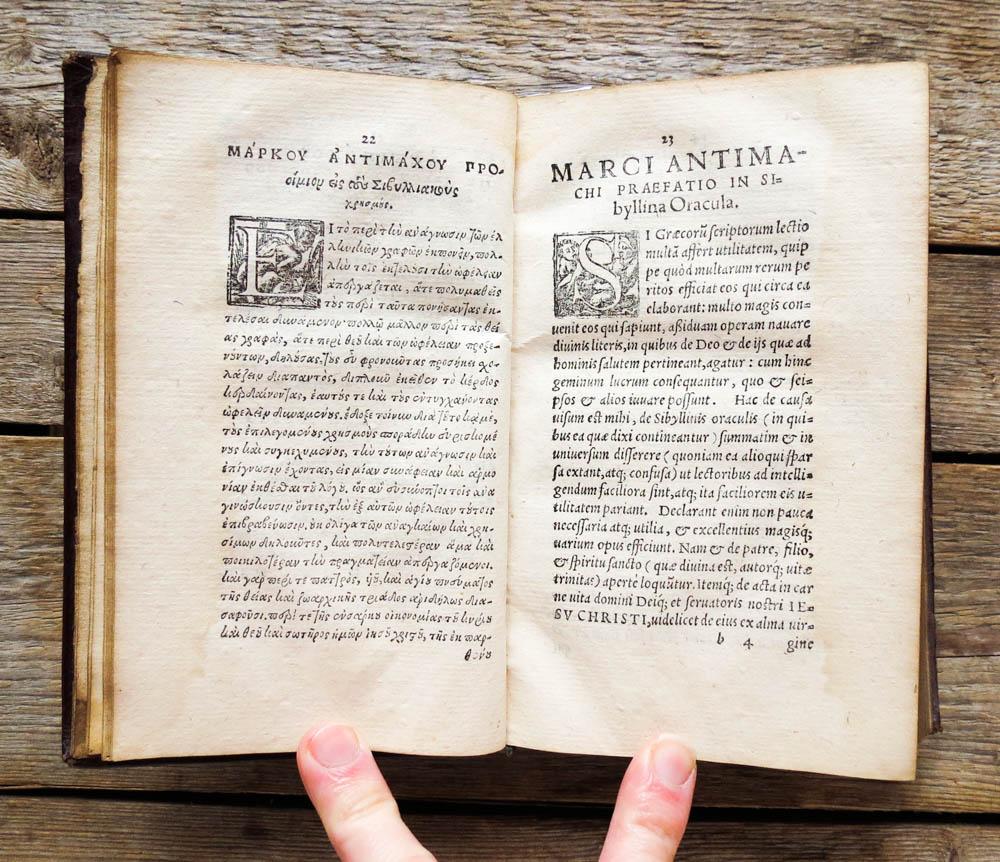 22
ΜΆΡΚΟΥ ἈΝΤΙΜΆΧΟΥ ΠΡΟ-
οίμιον εἰς τοὺς Σιβυλλιακοὺς
χρησμούς.
ΕΙ τὸ περὶ τὴν ἀνάγνωσιν τῶν ἑλ
ληνικῶν γραφῶν ἐκπονεῖν, πολ-
λὴν τοῖς ἐντελέσι τὴν ὠφέλειαν
ἀπεργάζεται, ἅτε πολυμαθεῖς
τοὺς περὶ ταῦτα πονήσαντας ἐκ-
τελέσαι δυνάμενον· πολλῷ μᾶλλον περὶ τὰς θεί
ας γραφάς, ἅτε περὶ θεοῦ καὶ τῶν ὠφέλειαν
τοὺς φρονοῦντας προσήκει σχο-
λάζειν διαπαντός, διπλοῦν ἐκεῖθεν τὸ κέρδος
κερδαίνοντας, ἑαυτούς τε καὶ τοὺς ἐντυγχάνοντας
ὠφελεῖν δυναμένους. ἔδοξε τοίνυν διὰ κἀμὲ,
τοὺς ἐπιλεγομένους χρησμοὺς σποράδην
νους καὶ συγκεχυμένους, τὴν τούτων ἀνάγνωσιν καὶ
ἐπίγνωσιν ἔχοντας, εἰς μίαν συνάφειαν καὶ ἁρμο
νίαν ἐκθέσθαι τοῦ λόγου. ὡς ἂν τοῖς ἀνα
γινώσκουσιν ὄντες, τὴν ἐξ αὐτῶν ὠφέλειαν τούτοις
ἐπιβραβεύσωσιν. οὐκ ὀλίγα τῶν ἀναγκαίων καὶ χρη-
σίμων δηλοῦντες, καὶ πολυτελεστέραν ἅμα καὶ
ποικιλοτέραν τὴν πραγματείαν ἀπεργαζόμενοι.
καὶ γὰρ περί τε πατρὸς, υἱοῦ, καὶ ἁγίου πνεύματος
τῆς θείας καὶ ζωαρχικῆς τριάδος ἀριδήλως δια-
σαφοῦσι. περί τε τῆς ἐνσάρκου οἰκονομίας τοῦ κυρίου
καὶ θεοῦ καὶ σωτῆρος ἡμῶν ἰησοῦ χριστοῦ, τῆς ἐκ παρ-
θένου
23
MARCI ANTIMA-
CHI PRAEFATIO IN SI-
byllina Oracula.
SI Græcorũ scriptorum lectio
multã affert utilitatem, quip
pe quòd multarum rerum pe
ritos efficiat eos qui circa ea
elaborant: multo magis con-
uenit eos qui sapiunt, aßiduam operam nauare
diuinis literis, in quibus de Deo & de ijs quæ ad
hominis salutem pertineant, agatur : cum hinc
geminum lucrum consequantur, quo & sei-
psos & alios iuuare possunt. Hac de causa
uisum est mihi, de Sibyllinis oraculis ( in qui-
bus ea quæ dixi contineantur ) summatim & in
uniuersum disserere ( quoniam ea alioqui spar
sa extant, atq; confusa) ut lectoribus ad intelli-
gendum faciliora sint, atq; ita faciliorem eis u-
tilitatem pariant. Declarant enim non pauca
necessaria atq; utilia, & excellentius magisq;
uarium opus efficiunt. Nam & de patre, filio,
& spiritu sancto ( quæ diuina est, autorq; uitæ
trinitas) apertè loquũtur. Itemq; de acta in car
ne uita domini Deiq; et seruatoris nostri IE-
SV CHRISTI, uidelicet de eius ex alma uir-
b 4 gine